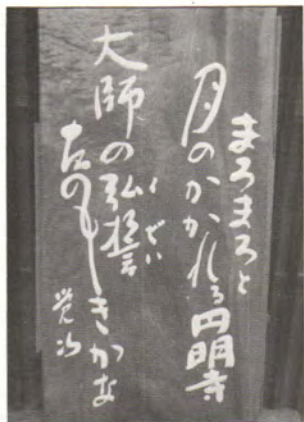 まろまろと
月のかかれる円明寺
大師の弘誓
ぐぜい
たのもしきかな